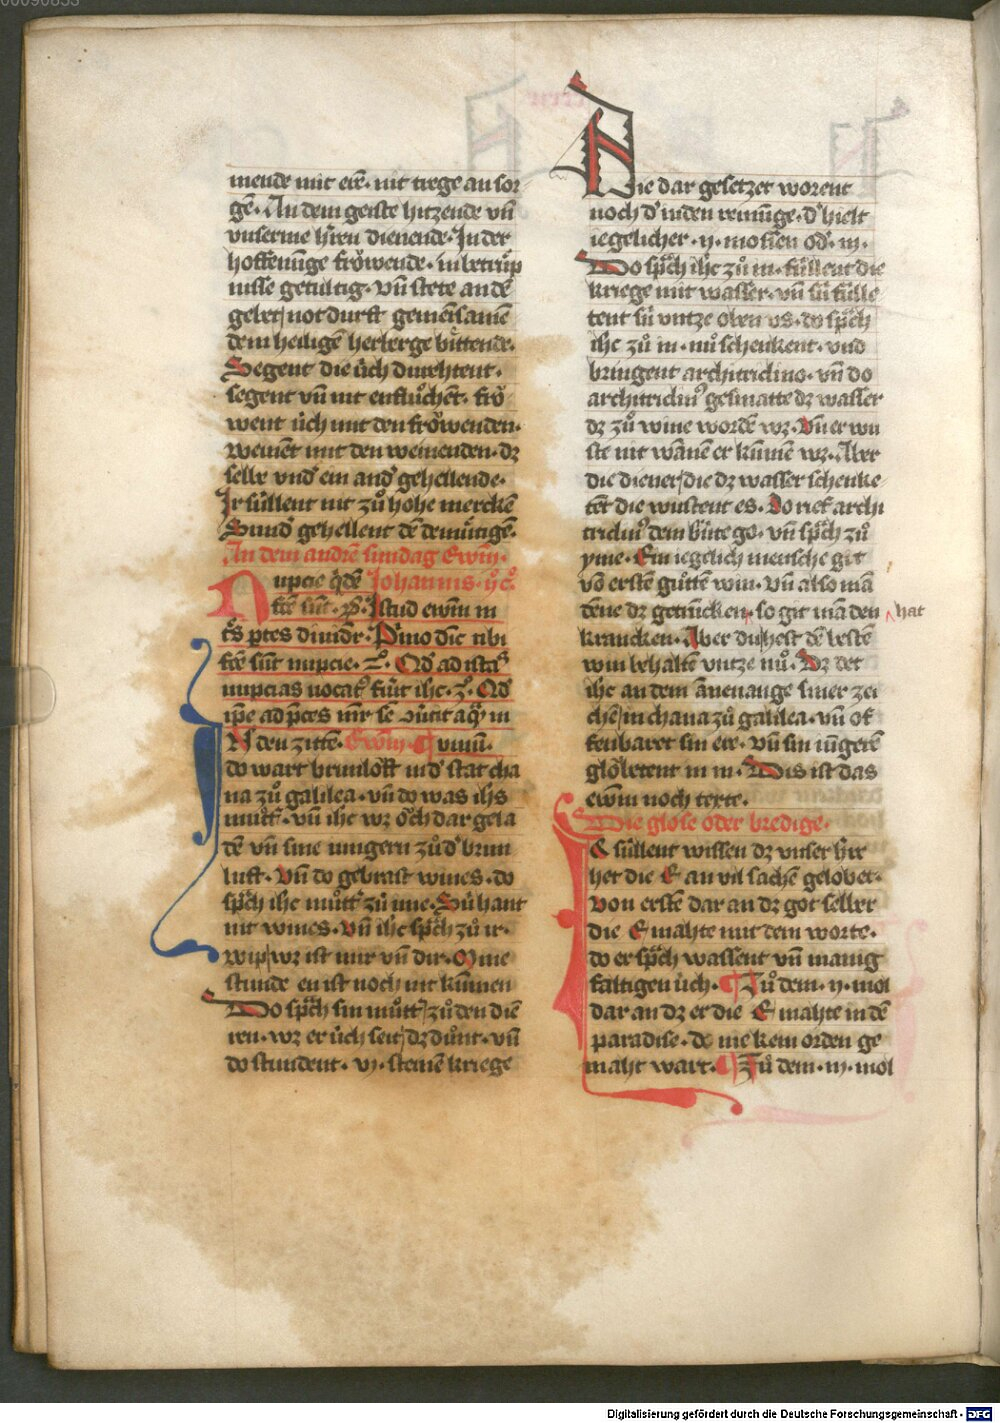 mende mit ere · nit trege an sor
ge · In dem geiste hitzende vñ
vnserme h̄ren dienende · In der
hoffenunge fröwende · in betrüp
nisse getultig · vñ stete an dē
gebet / notdurft gemeinsamē
dem heiligē herberge bittende ·
Segent die üch durehtent ·
segent vñ nit enflůchēt · frö
went üch mit den fröwenden ·
weinēt mit den weinenden · dz
selbe vnd ein and̾ gehellende ·
Ir süllent nit zů hohe merckē
Sund̾ gehellent dē demütigē ·
In dem andrē sundag Ewm̄ ·
Nupcie q̄dē Johannis · ijͦ cͦ ·
Istud ewm̄ in
ptes diuid̄r · Pͥmo dic̄ tibi
fc̄e sūt nupcie · Zͦ · Qd̾ ad istas
nupcias uocatͦ fuit ihc · 3ͦ · Qd̾
ipē ad p̄ces mr̄is se v̄utit aq̄ in
IN den zitte · Ewm̄ · ¶ vinū ·
do wart brunloft in d̾ stat cha
na zů galilea · vñ do was ihs
můtt̾ · vñ ihc wz ŏch dar gela
dē vñ sine iungern zů d̾ brun
luft · Vñ do gebrast wines · do
sp̄ch ihc můtt̾ zů ime · Sü hant
nit wines · Vñ ihc sp̄ch zů ir ·
wip / wz ist mir vñ dir · Mine
stunde en ist noch nit kum̄en
Do sp̄ch sin můtt̾ / zů den die
ren · wz er üch seit / dz důnt · vñ
do stundent · vj · steinē kriege
Nie dar gesetzet worent
noch d̾ iuden reinūge · d̾ hielt
iegelicher · ij · mossen od̾ · iij ·
Do sp̄ch ihc zů in · füllent die
kriege mit wasser · vñ sü fülle
tent sü vntze oben vs · do sp̄ch
ihc zů in · nů schenkent · vnd
bringent architriclino · vñ do
architriclinꝰ gesmatte dz wasser
dz zů wine wordē wz · Vñ er wu
ste nit wānē er kum̄ē wz · Aber
die diener / die dz wasser schenke
tēt die wustent es · Do rief archi
triclinꝰ dem brute go · vñ sp̄ch zů
yme · Ein iegelich mensche git
vō erstē gůttē win · vñ also mā
dēne dz getruckē · so git mā den hat
krancken · Aber du hest dē bestē
win behaltē vntze nů · Dz det
ihc an dem āneuange siner zei
chē / in chana zů galilea · vñ of
fenbaret sin ere · vñ sin iūgerē
glŏbetent in in · Dis ist das
ewm̄ noch texte ·
Die glose oder bredige ·
Ir süllent wissen dz vnser h̄re
het die E an vil sachē gelobet ·
Von erstē dar an dz got selber
die E mahte mit dem worte ·
do er sp̄ch wassent vñ manig
faltigen üch · ¶ Zů dem · ij · mol
dar an dz er die E mahte in dē
paradise · do nie kein orden ge
maht wart · ¶ Zů dem · iij · mol
Digitalisierung gefördert durch die Deutsche Forschungsgemeinschaft - DFG